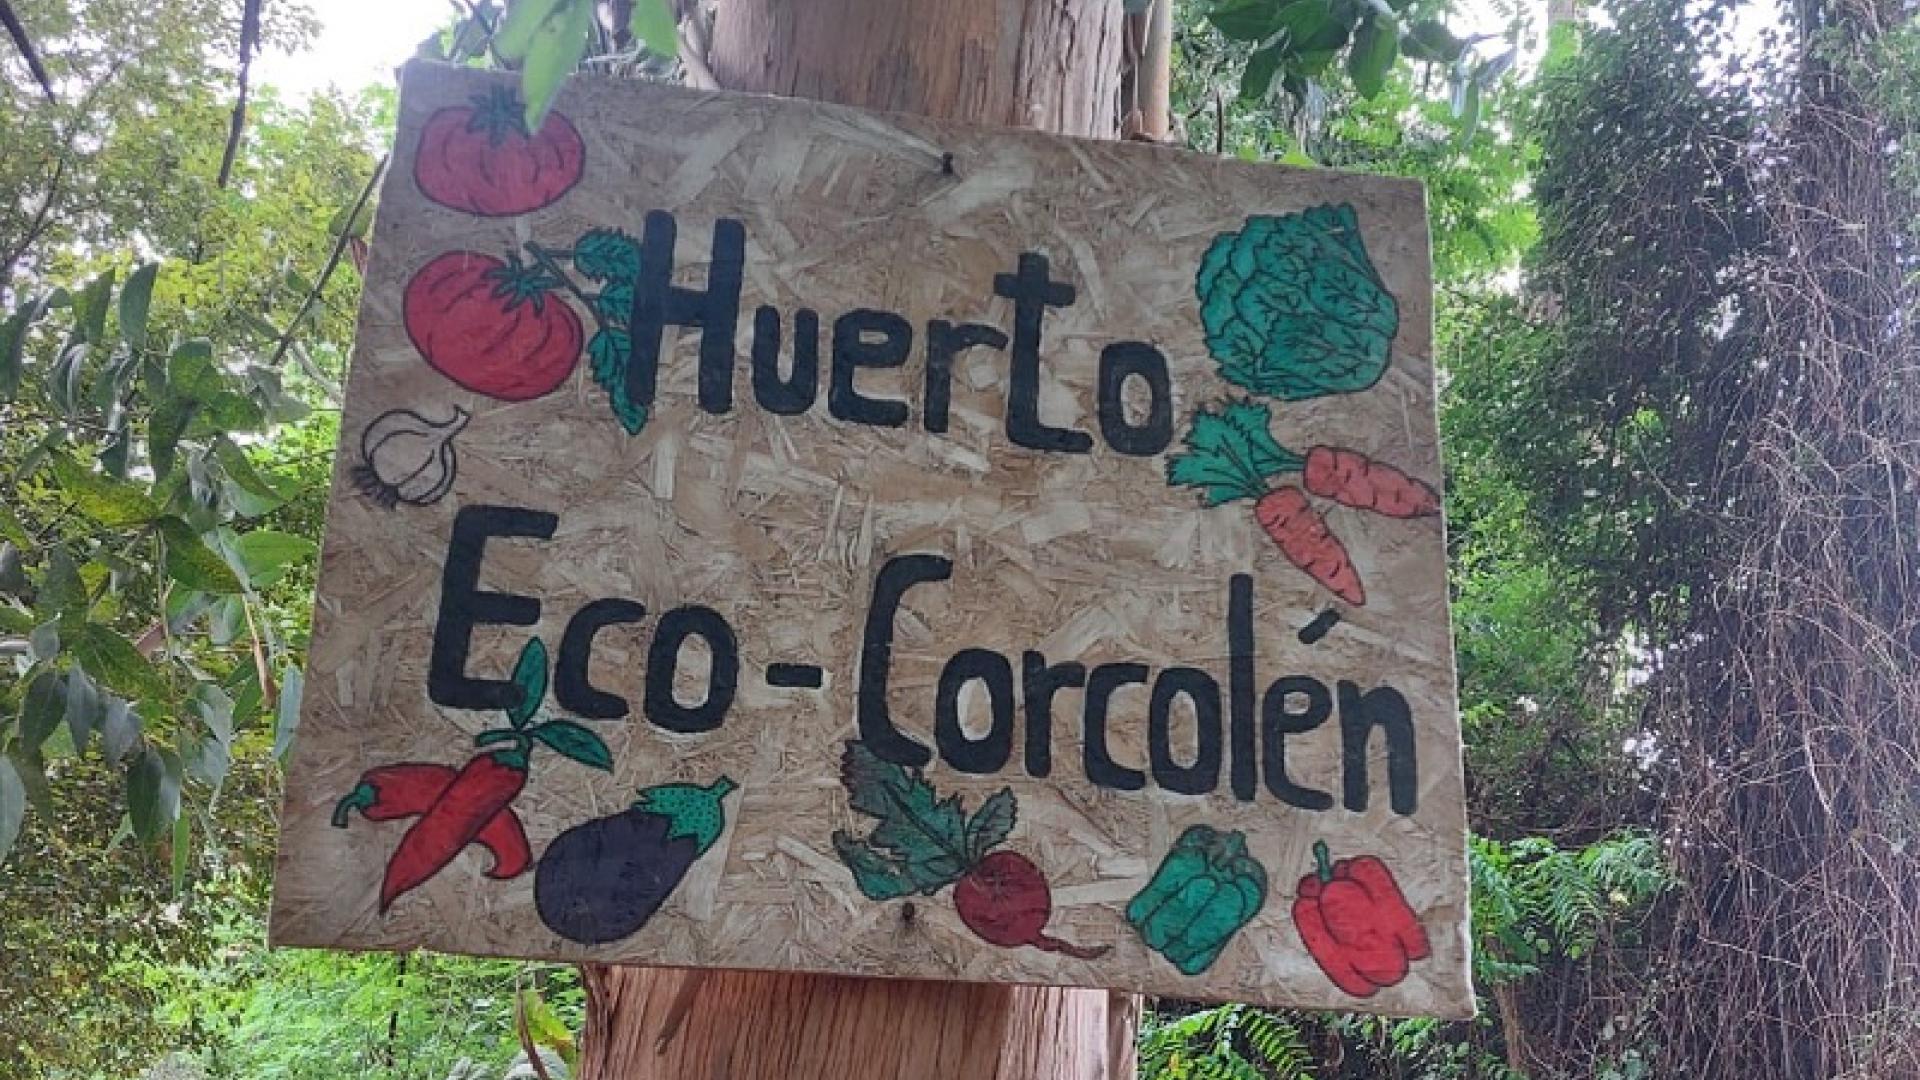 Huerto
Eco-Corcolén